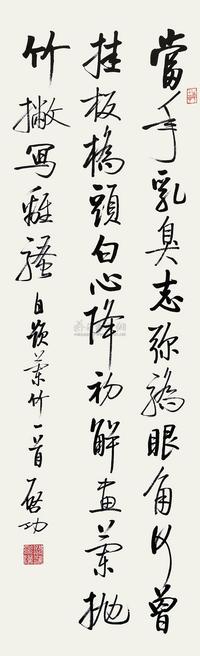 當年乳臭志彌驕眼角何曾
挂板橋頭白心降初解畫蘭拋
竹撇寫離騷自題蘭竹一首啟功